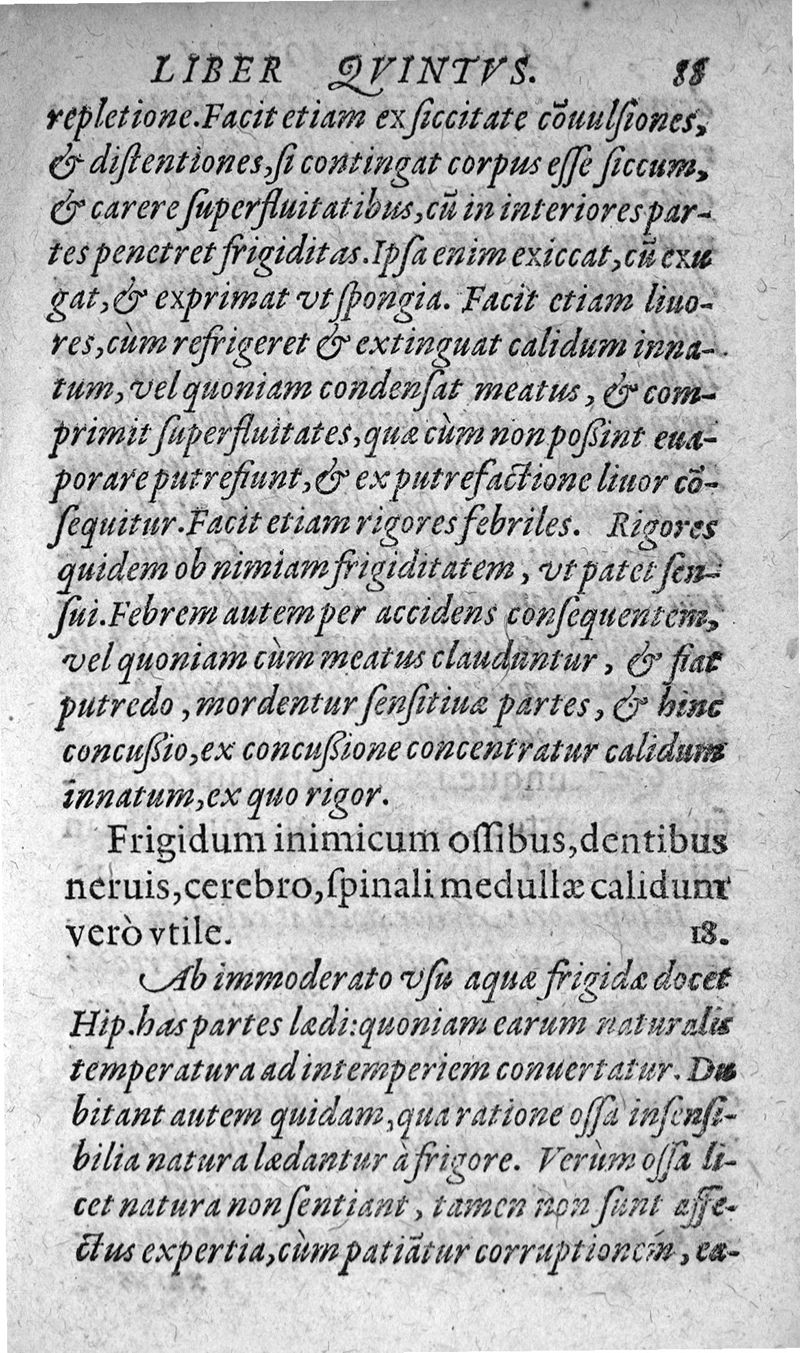 LIBER QVINTVS. 88
repletione. Facit etiam ex ſiccitate cōuulſiones,
& diſtentiones, ſi contingat corpus eſſe ſiccum,
& carere ſuperfluitatibus, cū in interiores par-
tes penetret frigiditas. Ipſa enim exiccat, cū exu
gat, & exprimat vt ſpongia. Facit etiam liuo-
res, cùm refrigeret & extinguat calidum inna-
tum, vel quoniam condenſat meatus, & com-
primit ſuperfluitates, quæ cùm non poßint eua-
porare putrefiunt, & ex putrefactione liuor cō-
ſequitur. Facit etiam rigores febriles. Rigores
quidem ob nimiam frigiditatem, vt patet ſen-
ſui. Febrem autem per accidens conſequentem,
vel quoniam cùm meatus clauduntur, & fiat
putredo, mordentur ſenſitiuæ partes, & hinc
concußio, ex concußione concentratur calidum
innatum, ex quo rigor.
Frigidum inimicum oſſibus, dentibus
neruis, cerebro, ſpinali medullæ calidum
verò vtile. 18.
Ab immoderato vſu aquæ frigidæ docet
Hip. has partes lædi: quoniam earum naturalis
temperatura ad intemperiem conuertatur. Du
bitant autem quidam, qua ratione oſſa inſenſi-
bilia natura lædantur à frigore. Verùm oſſa li-
cet natura non ſentiant, tamen non ſunt affe-
ctus expertia, cùm patiātur corruptionem, ea-